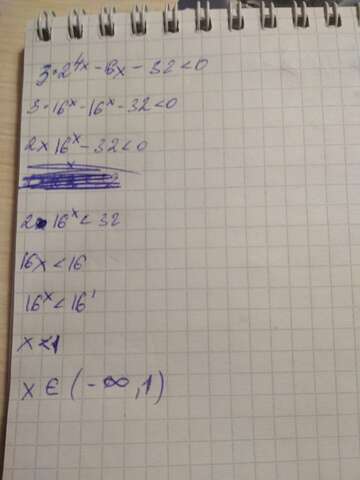 3·2^4x - 6x - 32<0
3·16^x - 16^x - 32<0
2x 16^x - 32<0
2·16^x < 32
16x < 16
16^x < 16^1
x<1
x ∈ (-∞, 1)